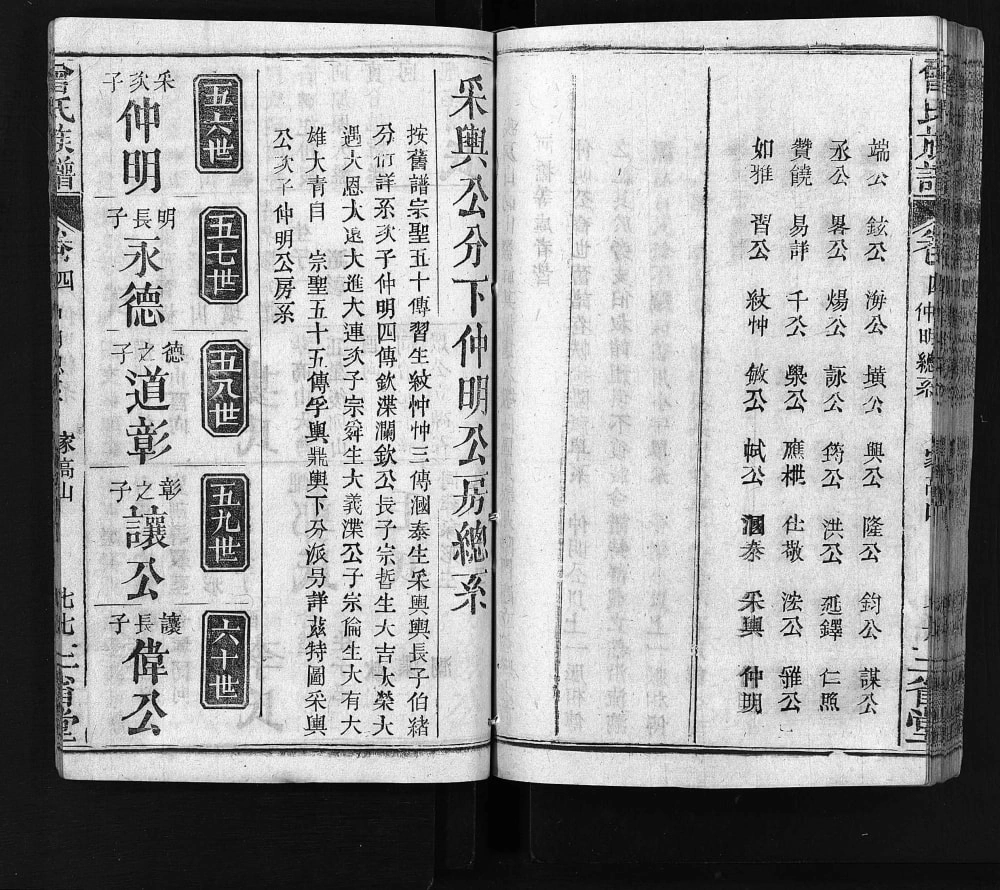 曾氏族譜 卷四 仲明總系 三省堂
端公 鉉公 㳺公 墳公 興公 隆公 鈞公 謀公
丞公 畧公 煬公 詠公 筠公 洪公 㢟鐸 仁照
贊饒 易詳 千公 㯯公 應栱 仕敬 浤公 雅公
如雅 習公 紋忡 敏公 軾公 漍泰 采輿 仲明
采輿公分下仲明公房總系
按舊譜宗聖五十傳習生紋忡忡三傳漍泰生采輿輿長子伯緒
另訂詳系次子仲明四傳欽渫瀾欽公長子宗哲生大吉大榮大
遇大恩大遠大進大連次子宗舜生大義渫公子宗倫生大有大
雄大青自 宗聖五十五傳孚輿鼎輿下分派另詳茲特圖采輿
公次子仲明公房系
五六世 采次子 仲明
五七世 明長子 永德
五八世 德之子 道彰
五九世 彰之子 讓公
六十世 讓長子 偉公
曾氏族譜 卷四 家高山 七七 三省堂